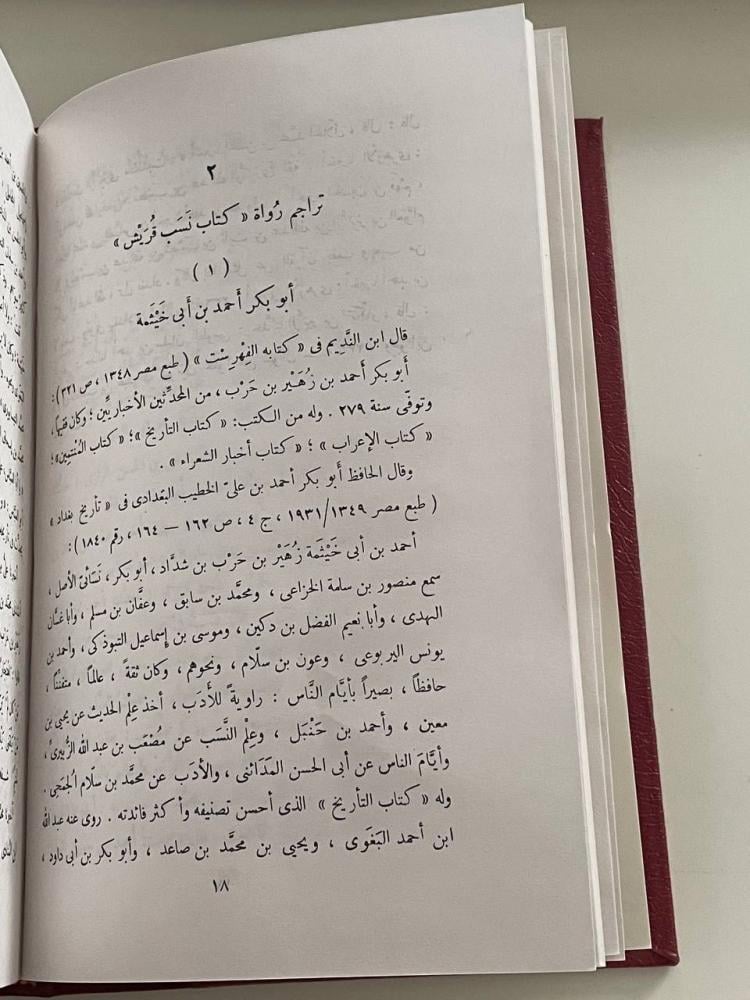 ٢
تراجم رُواة « كتاب نَسَب قُرَيْش »
( ١ )
أبو بكر أَحمد بن أَبى خَيْثَمة
قال ابن النَّدِيم فى « كتابه الفِهْرِسْت » ( طبع مصر ١٣٤٨ ، ص ٣٢١ ) :
أَبو بكر أحمد بن زُهَيْر بن حَرْب ، من المحدِّثين الأخباريِّين ؛ وكان فقيهاً ،
وتوفّى سنة ٢٧٩ . وله من الكتب : « كتاب التأريخ » ؛ « كتاب المُنْتَمِين » ؛
« كتاب الإعراب » ؛ « كتاب أخبار الشعراء » .
وقال الحافظ أَبو بكر أحمد بن علىّ الخطيب البغدادى فى « تأريخ بغداد »
( طبع مصر ١٣٤٩/١٩٣١ ، ج ٤ ، ص ١٦٢ — ١٦٤ ، رقم ١٨٤٠ ) :
أحمد بن أبى خَيْثَمة زُهَيْر بن حَرْب بن شدَّاد ، أبو بكر ، نَسَائىّ الأصل ،
سمع منصور بن سلمة الخزاعى ، ومحمَّد بن سابق ، وعفَّان بن مسلم ، وأبا غسَّان
النهدى ، وأبا نعيم الفضل بن دكين ، وموسى بن إسماعيل التبوذكى ، وأحمد بن
يونس اليربوعى ، وعون بن سلّام ، ونحوهم ، وكان ثقةً ، عالمًا ، متفنّنًا ،
حافظاً ، بصيراً بأيَّام النَّاس : راويةً للأَدَب ، أخذ عِلم الحديث عن يحيى بن
معين ، وأحمد بن حَنْبَل ، وعِلْم النَّسَب عن مصْعَب بن عبد الله الزُّبيرىّ ،
وأيَّامَ الناس عن أبى الحسن المَدَائنى ، والأدَب عن محمَّد بن سلّام الجُمَحى .
وله « كتاب التأريخ » الذى أحسن تصنيفه وأكثر فائدته . روى عنه عبد الله
ابن أحمد البَغَوى ، ويحيى بن محمَّد بن صاعد ، وأبو بكر بن أبى داود ،
١٨